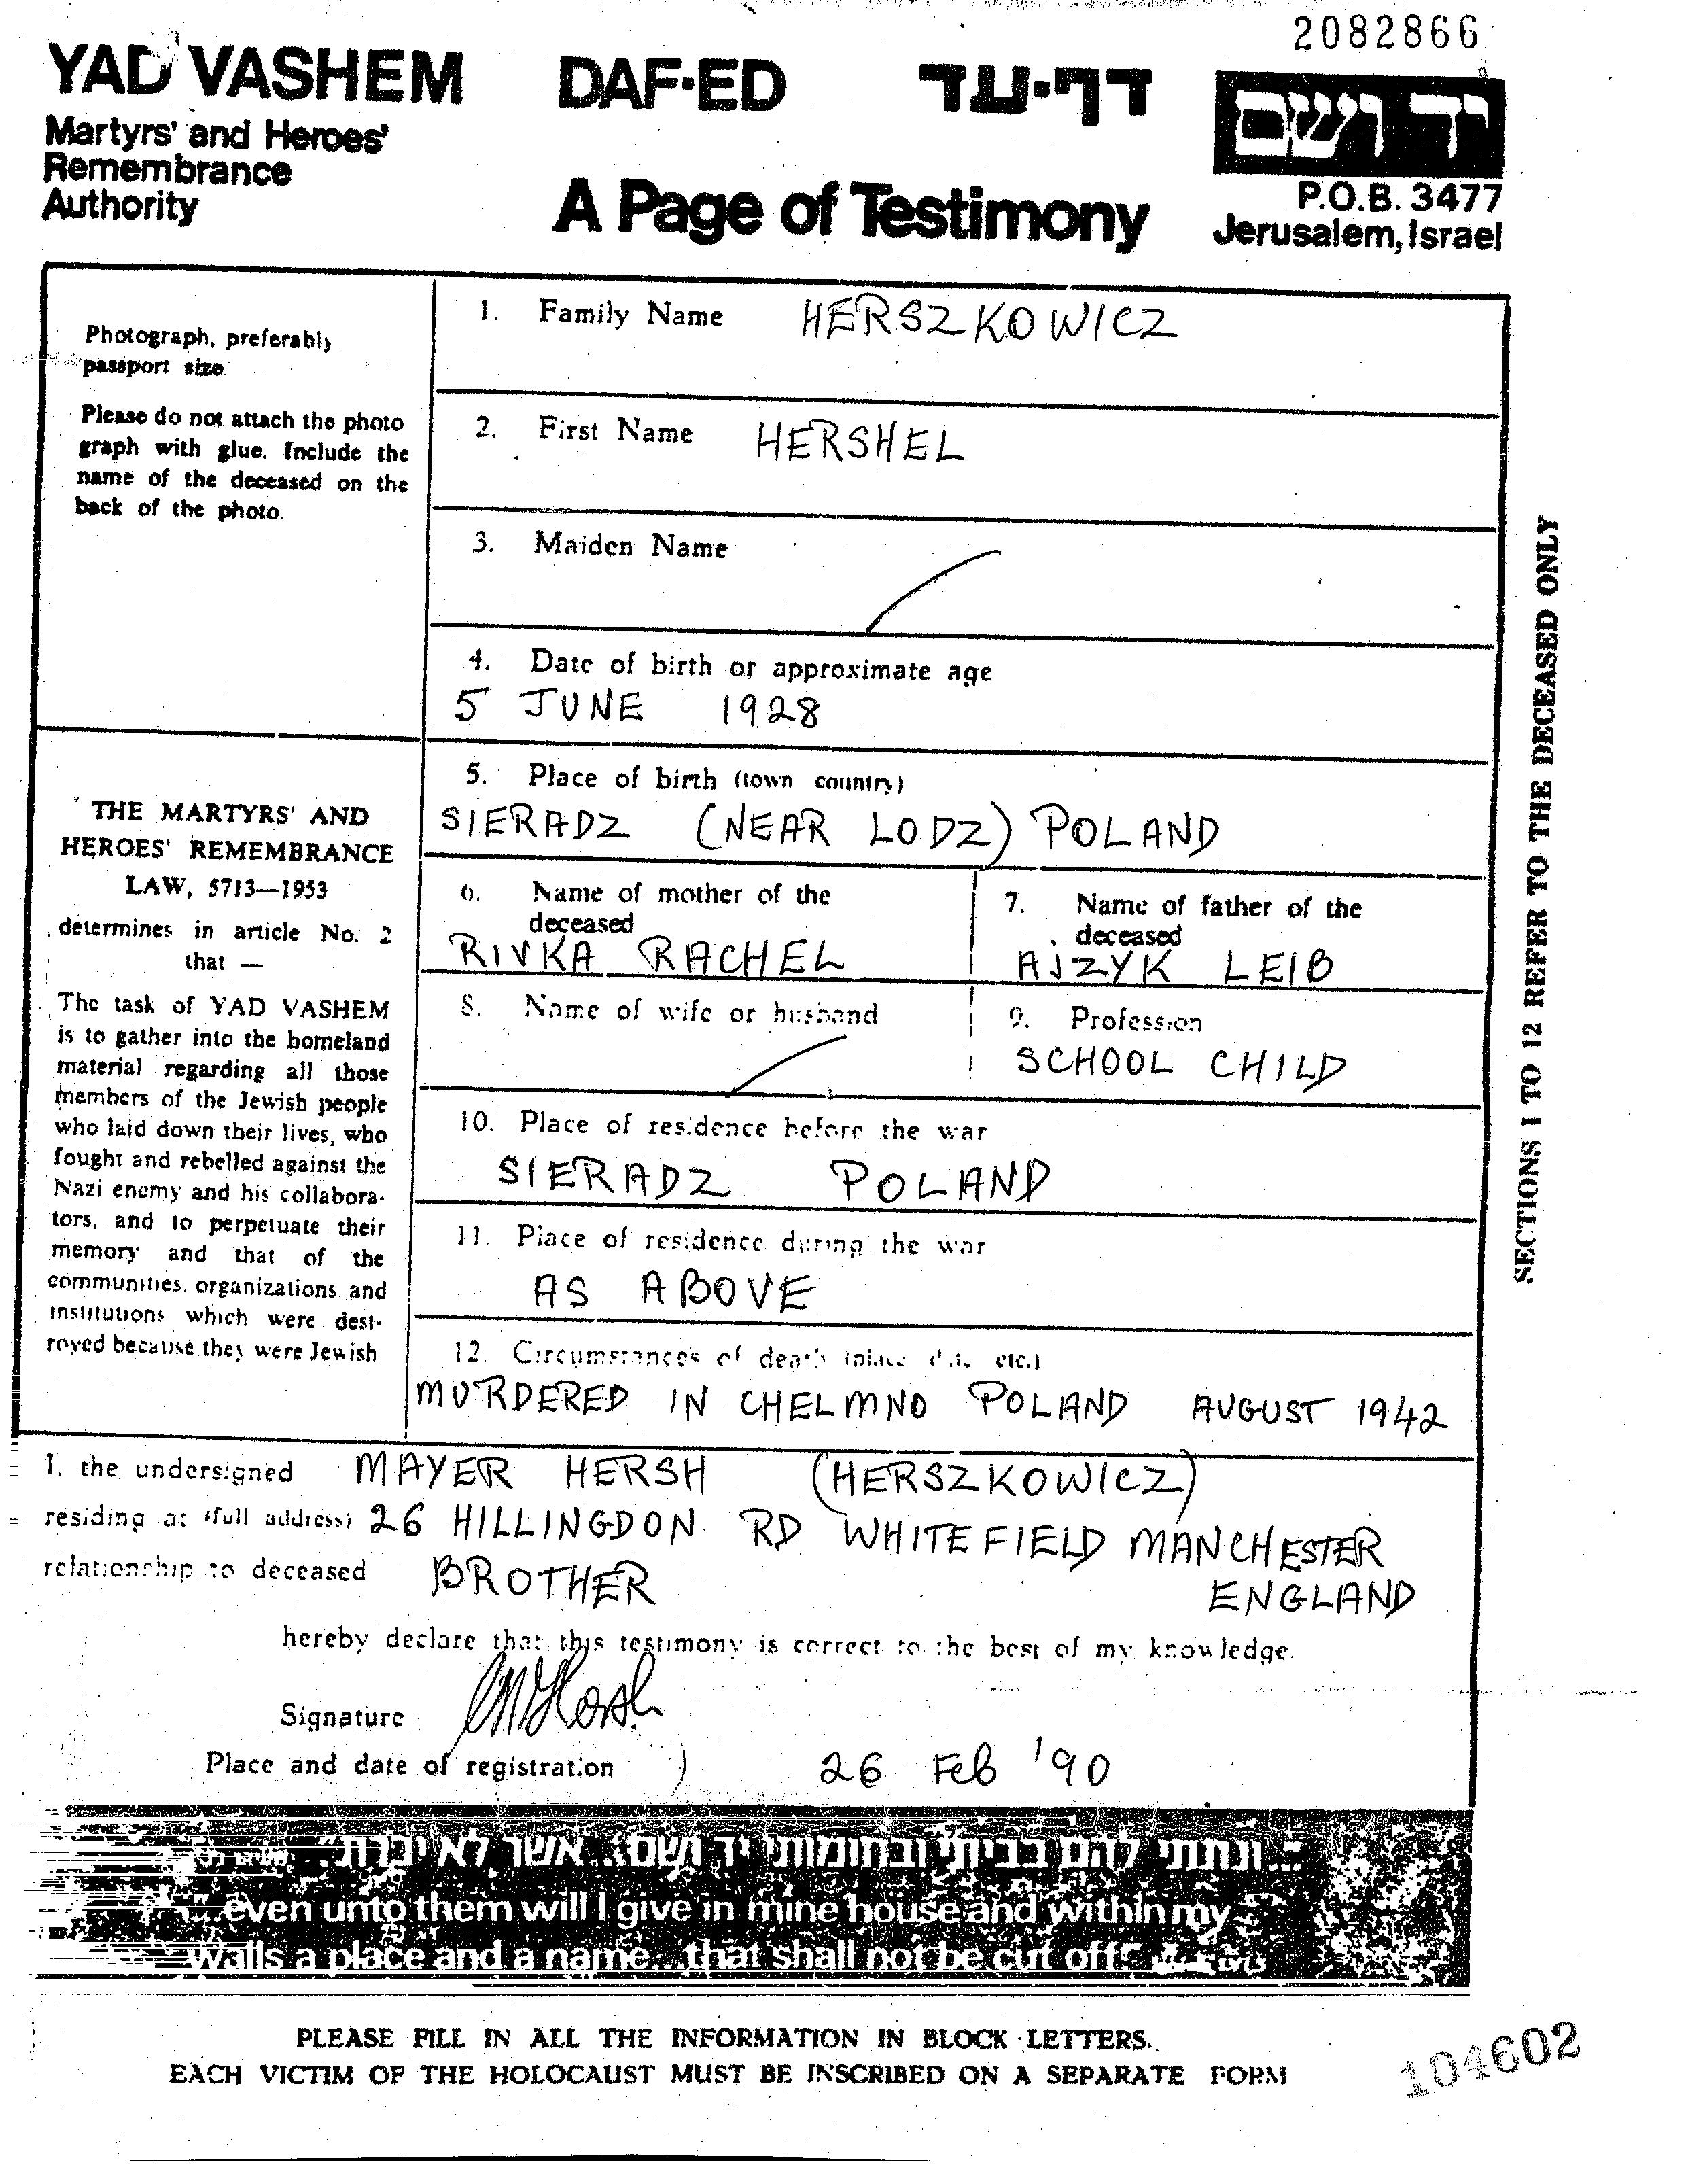 2082866
YAD VASHEM DAF-ED דף-עד יד ושם
Martyrs' and Heroes'
Remembrance
Authority
A Page of Testimony
P.O.B. 3477
Jerusalem, Israel
Photograph, preferably
passport size
Please do not attach the photo
graph with glue. Include the
name of the deceased on the
back of the photo.
THE MARTYRS' AND
HEROES' REMEMBRANCE
LAW, 5713—1953
determines in article No. 2
that —
The task of YAD VASHEM
is to gather into the homeland
material regarding all those
members of the Jewish people
who laid down their lives, who
fought and rebelled against the
Nazi enemy and his collabora-
tors, and to perpetuate their
memory and that of the
communities, organizations and
institutions which were dest-
royed because they were Jewish
1. Family Name HERSZKOWICZ
2. First Name HERSHEL
3. Maiden Name
4. Date of birth or approximate age
5 JUNE 1928
5. Place of birth (town country)
SIERADZ (NEAR LODZ) POLAND
6. Name of mother of the
deceased
RIVKA RACHEL
7. Name of father of the
deceased
AJZYK LEIB
8. Name of wife or husband
9. Profession
SCHOOL CHILD
10. Place of residence before the war
SIERADZ POLAND
11. Place of residence during the war
AS ABOVE
12. Circumstances of death (place, date, etc.)
MURDERED IN CHELMNO POLAND AUGUST 1942
SECTIONS 1 TO 12 REFER TO THE DECEASED ONLY
I, the undersigned MAYER HERSH (HERSZKOWICZ)
residing at (full address) 26 HILLINGDON RD WHITEFIELD MANCHESTER
ENGLAND
relationship to deceased BROTHER
hereby declare that this testimony is correct to the best of my knowledge.
Signature M Hersh
Place and date of registration 26 Feb '90
"...ונתתי להם בביתי ובחומותי יד ושם... אשר לא יכרת"
"...even unto them will I give in mine house and within my
walls a place and a name...that shall not be cut off."
PLEASE FILL IN ALL THE INFORMATION IN BLOCK LETTERS.
EACH VICTIM OF THE HOLOCAUST MUST BE INSCRIBED ON A SEPARATE FORM
104602